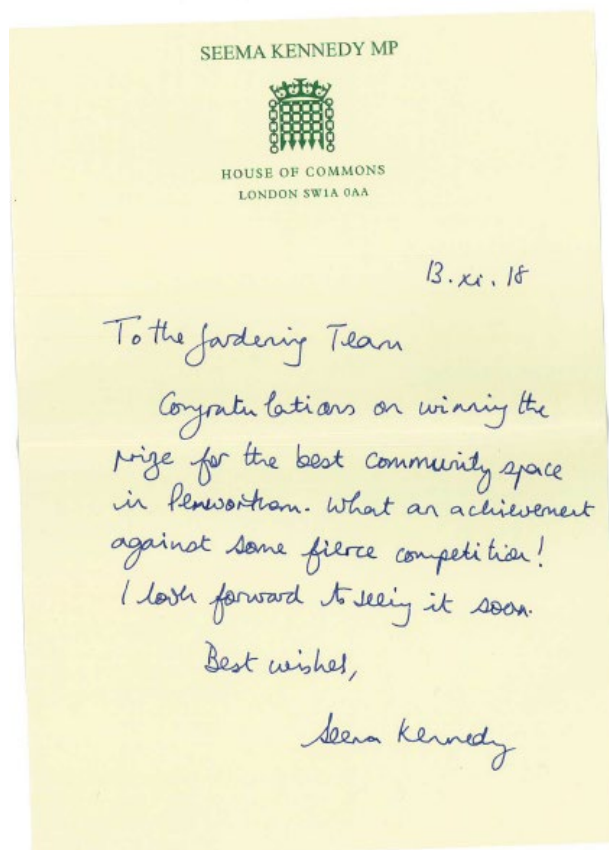 SEEMA KENNEDY MP
HOUSE OF COMMONS
LONDON SW1A 0AA
13.xi.18
To the Gardening Team
Congratulations on winning the
prize for the best community space
in Penwortham. What an achievement
against some fierce competition!
I look forward to seeing it soon.
Best wishes,
Seema Kennedy